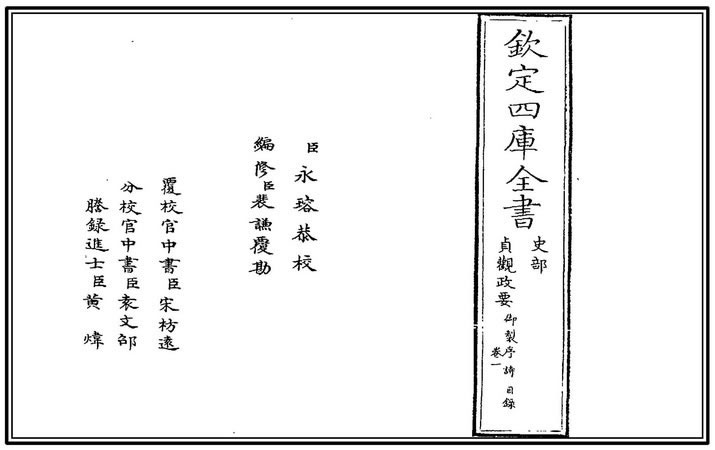 欽定四庫全書
史部
貞觀政要
御製序詩目錄
卷一
臣永瑢恭校
編修臣裴謙覆勘
覆校官中書臣宋枋遠
分校官中書臣袁文邵
謄録進士臣黄煒